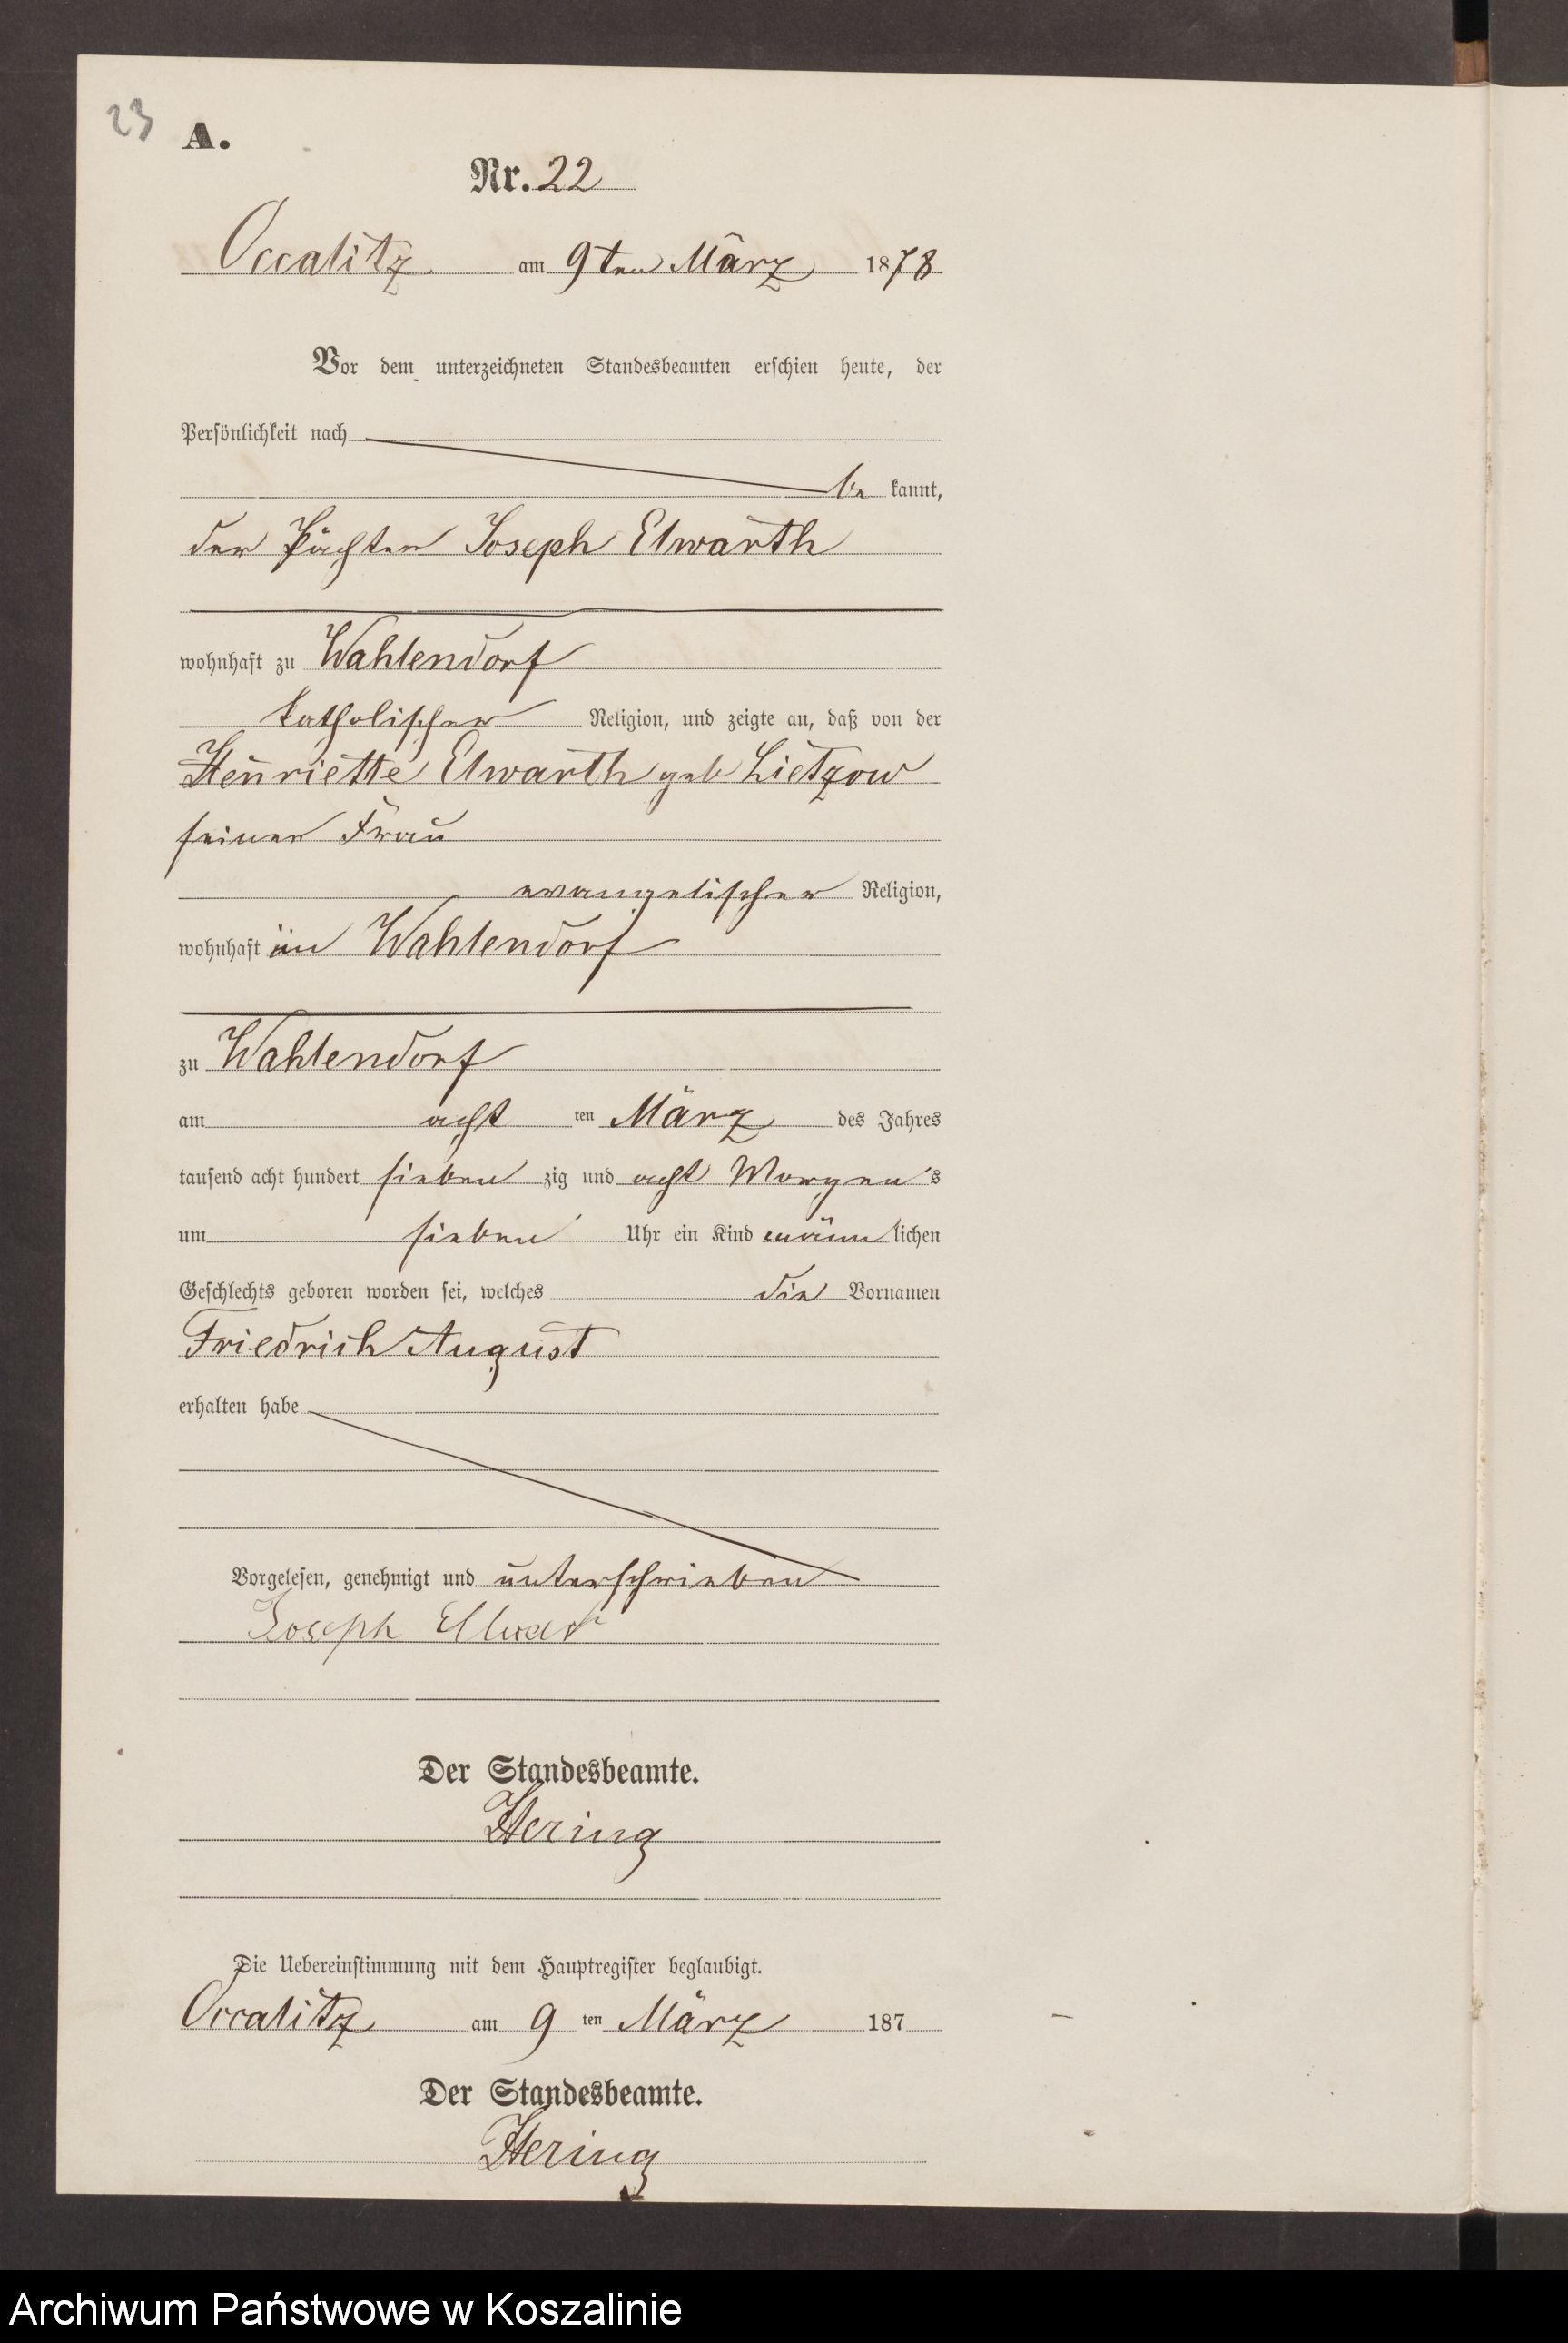 23
A.
Nr. 22
Occalitz am 9ten März 1878
Vor dem unterzeichneten Standesbeamten erschien heute, der
Persönlichkeit nach
be kannt,
der Pächter Joseph Elwarth
wohnhaft zu Wahlendorf
katholischer Religion, und zeigte an, daß von der
Henriette Elwarth geb Lietzow
seiner Frau
evangelischer Religion,
wohnhaft in Wahlendorf
zu Wahlendorf
am acht ten März des Jahres
tausend acht hundert sieben zig und acht Morgens
um sieben Uhr ein Kind männ lichen
Geschlechts geboren worden sei, welches die Vornamen
Friedrich August
erhalten habe
Vorgelesen, genehmigt und unterschrieben
Joseph Ellwart
Der Standesbeamte.
Hering
Die Uebereinstimmung mit dem Hauptregister beglaubigt.
Occalitz am 9 ten März 187
Der Standesbeamte.
Hering
Archiwum Państwowe w Koszalinie